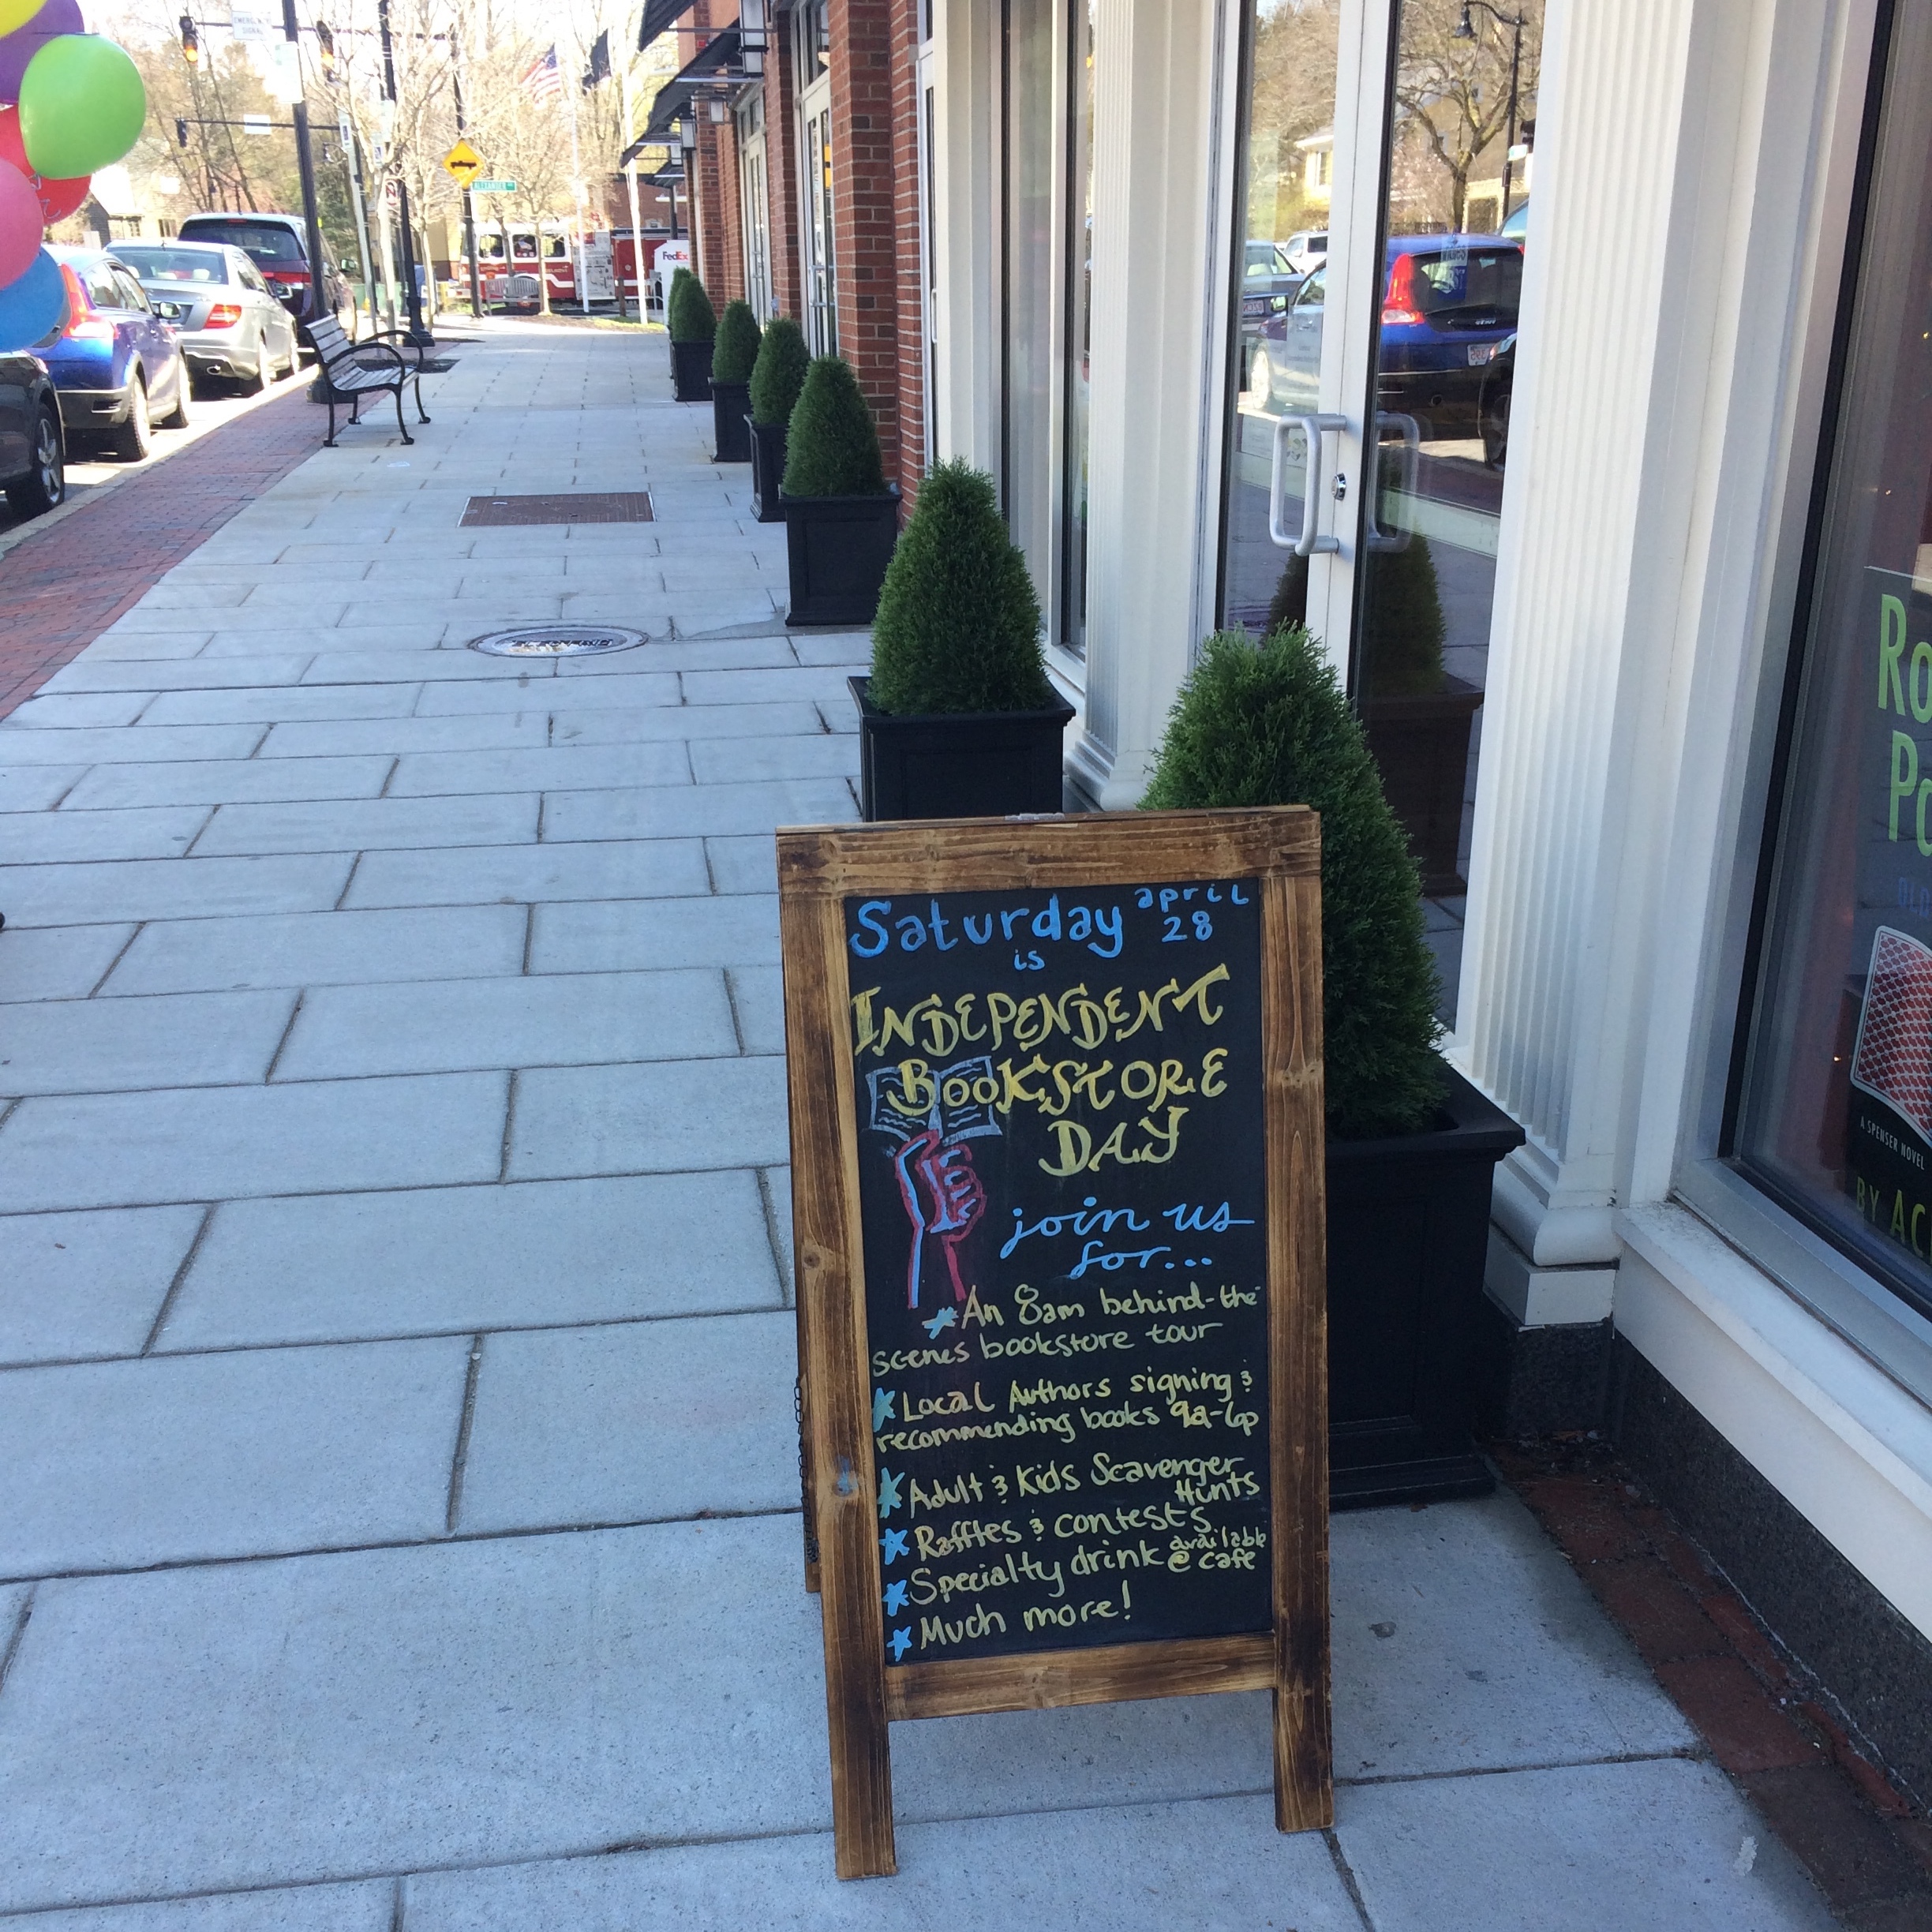 EMERGENCY
SIGNAL
ALEXANDER
FedEx
Saturday april
28
is
INDEPENDENT
BOOKSTORE
DAY
join us
for...
An 8am behind-the-
scenes bookstore tour
Local Authors signing &
recommending books 9a-6p
Adult & Kids Scavenger
Hunts
Raffles & contests
Specialty drink available
@ cafe
Much more!
Ro
Pa
A SPENSER NOVEL
BY AC